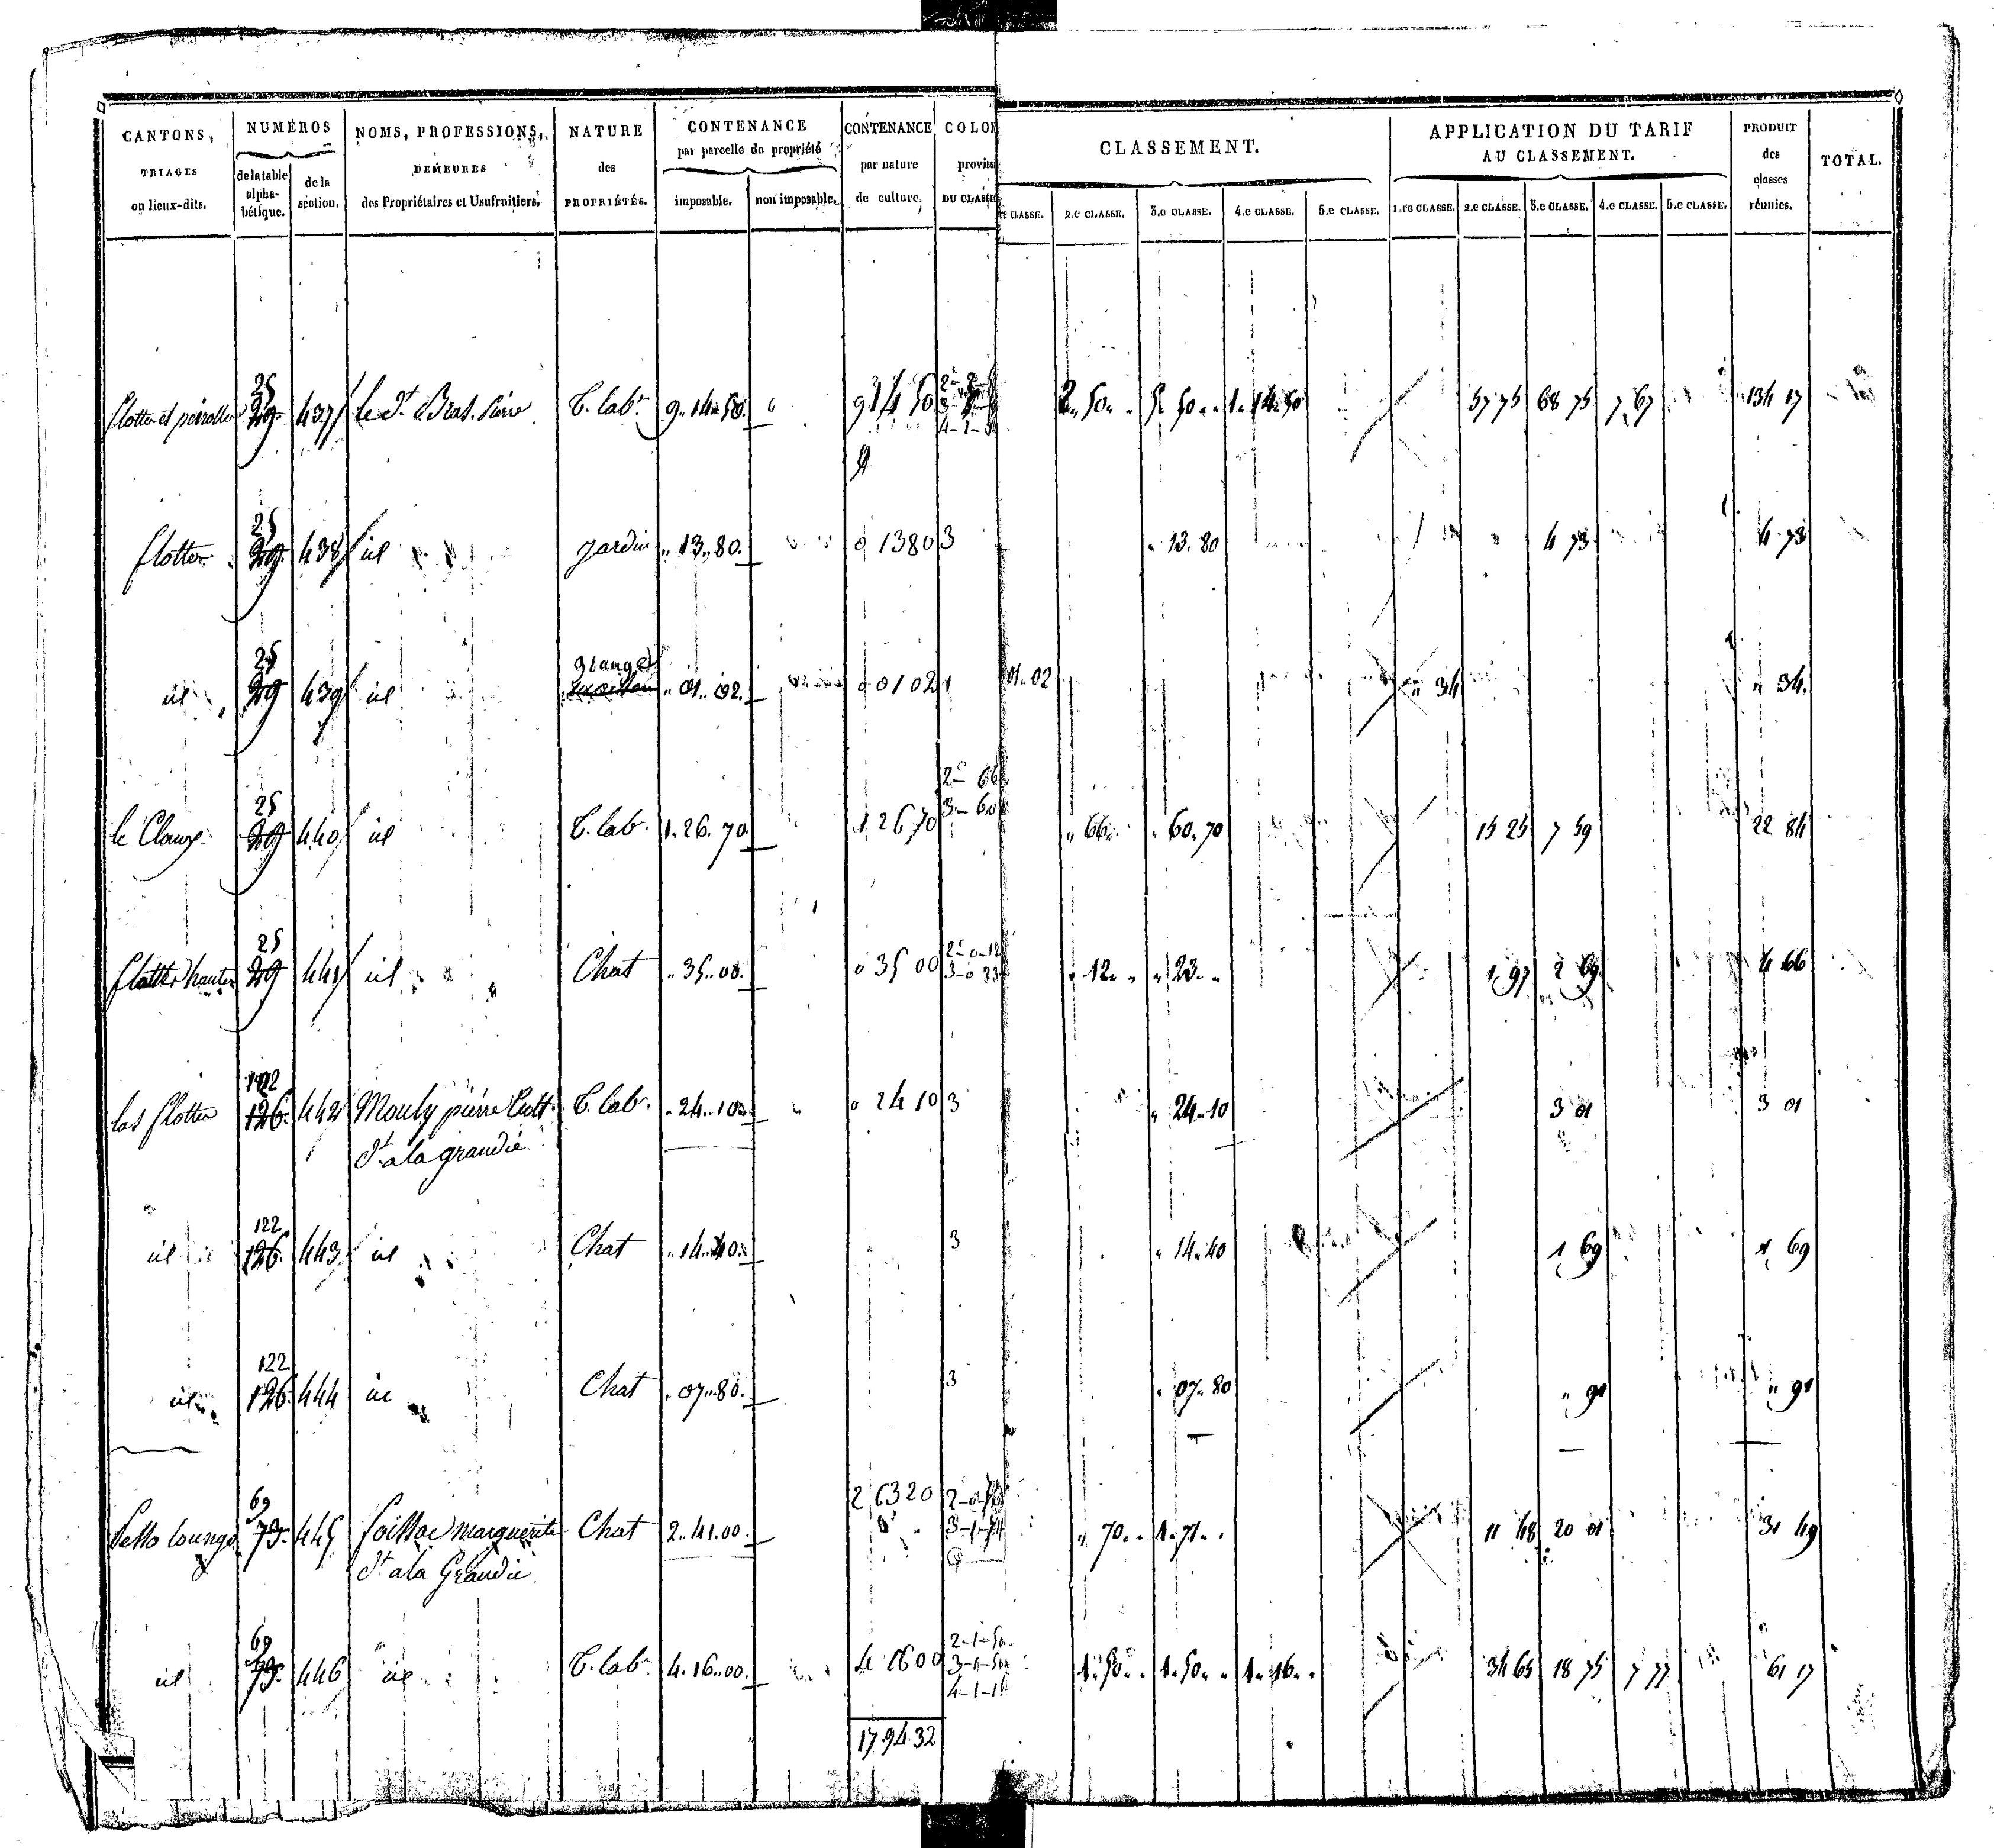 CANTONS, TRIAGES ou lieux-dits. | NUMÉROS de la table alpha-bétique. | de la section. | NOMS, PROFESSIONS, DEMEURES des Propriétaires et Usufruitiers. | NATURE des PROPRIÉTÉS. | CONTENANCE par parcelle de propriété imposable. | non imposable. | CONTENANCE par nature de culture. | COLON provis DU CLASSE | CLASSEMENT. re CLASSE. | 2.e CLASSE. | 3.e CLASSE. | 4.e CLASSE. | 5.e CLASSE. | APPLICATION DU TARIF AU CLASSEMENT. 1.re CLASSE. | 2.e CLASSE. | 3.e CLASSE. | 4.e CLASSE. | 5.e CLASSE. | PRODUIT des classes réunies. | TOTAL.
25
flotter et 29 437 le dt Bras Pierre T. labr 9.14.50. 9 14 50 2..50.. 5..50.. 1..14.50 57 75 68 75 7 67 134 17
25
flotter 29 438 id jardin .. 13..80. 0 1380 3 .. 13.80 4 73 4 73
25 grange
id 29 439 id .. 01..02. 0 0102 1 01..02 .. 34 .. 34.
2- 66
25 3- 60
le Claux 29 440 id T. lab. 1.26.70. 1 2670 .. 66. .. 60.70 15 25 7 59 22 84
25 2-0-12
flotter hautes 29 441 id Chat .. 35..00. 0 35 00 3-0 23 .. 12.. .. 23.. 1 97 2 69 4 66
122
las flotter 126. 442 Mouly pierre Cult. T. lab. .. 24..10. 0 2410 3 .. 24..10 3 01 3 01
dt a la grandie
122
id 126. 443 id Chat .. 14..40. 3 .. 14.40 1 69 1 69
122
id 126. 444 id Chat .. 07..80. 3 .. 07.80 .. 91 .. 91
69 2 6320 2-0-70
loungo 73. 445 foissac marguerite Chat 2..41.00. 3-1-71 .. 70.. 1..71.. 11 48 20 01 31 49
dt a la Grandie
69 2-1-50
id 73. 446 id T. lab. 4.16..00. 4 1600 3-1-50 1..50.. 1..50.. 1..16.. 34 65 18 75 7 77 61 17
4-1-16
17.94.32